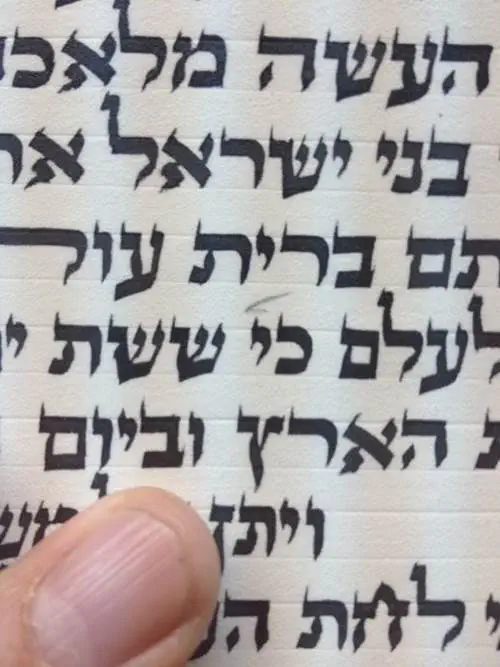 העשה מלאכ
בני ישראל
תם ברית
לעלם כי ששת י
ת הארץ וביום
וית
י לחת